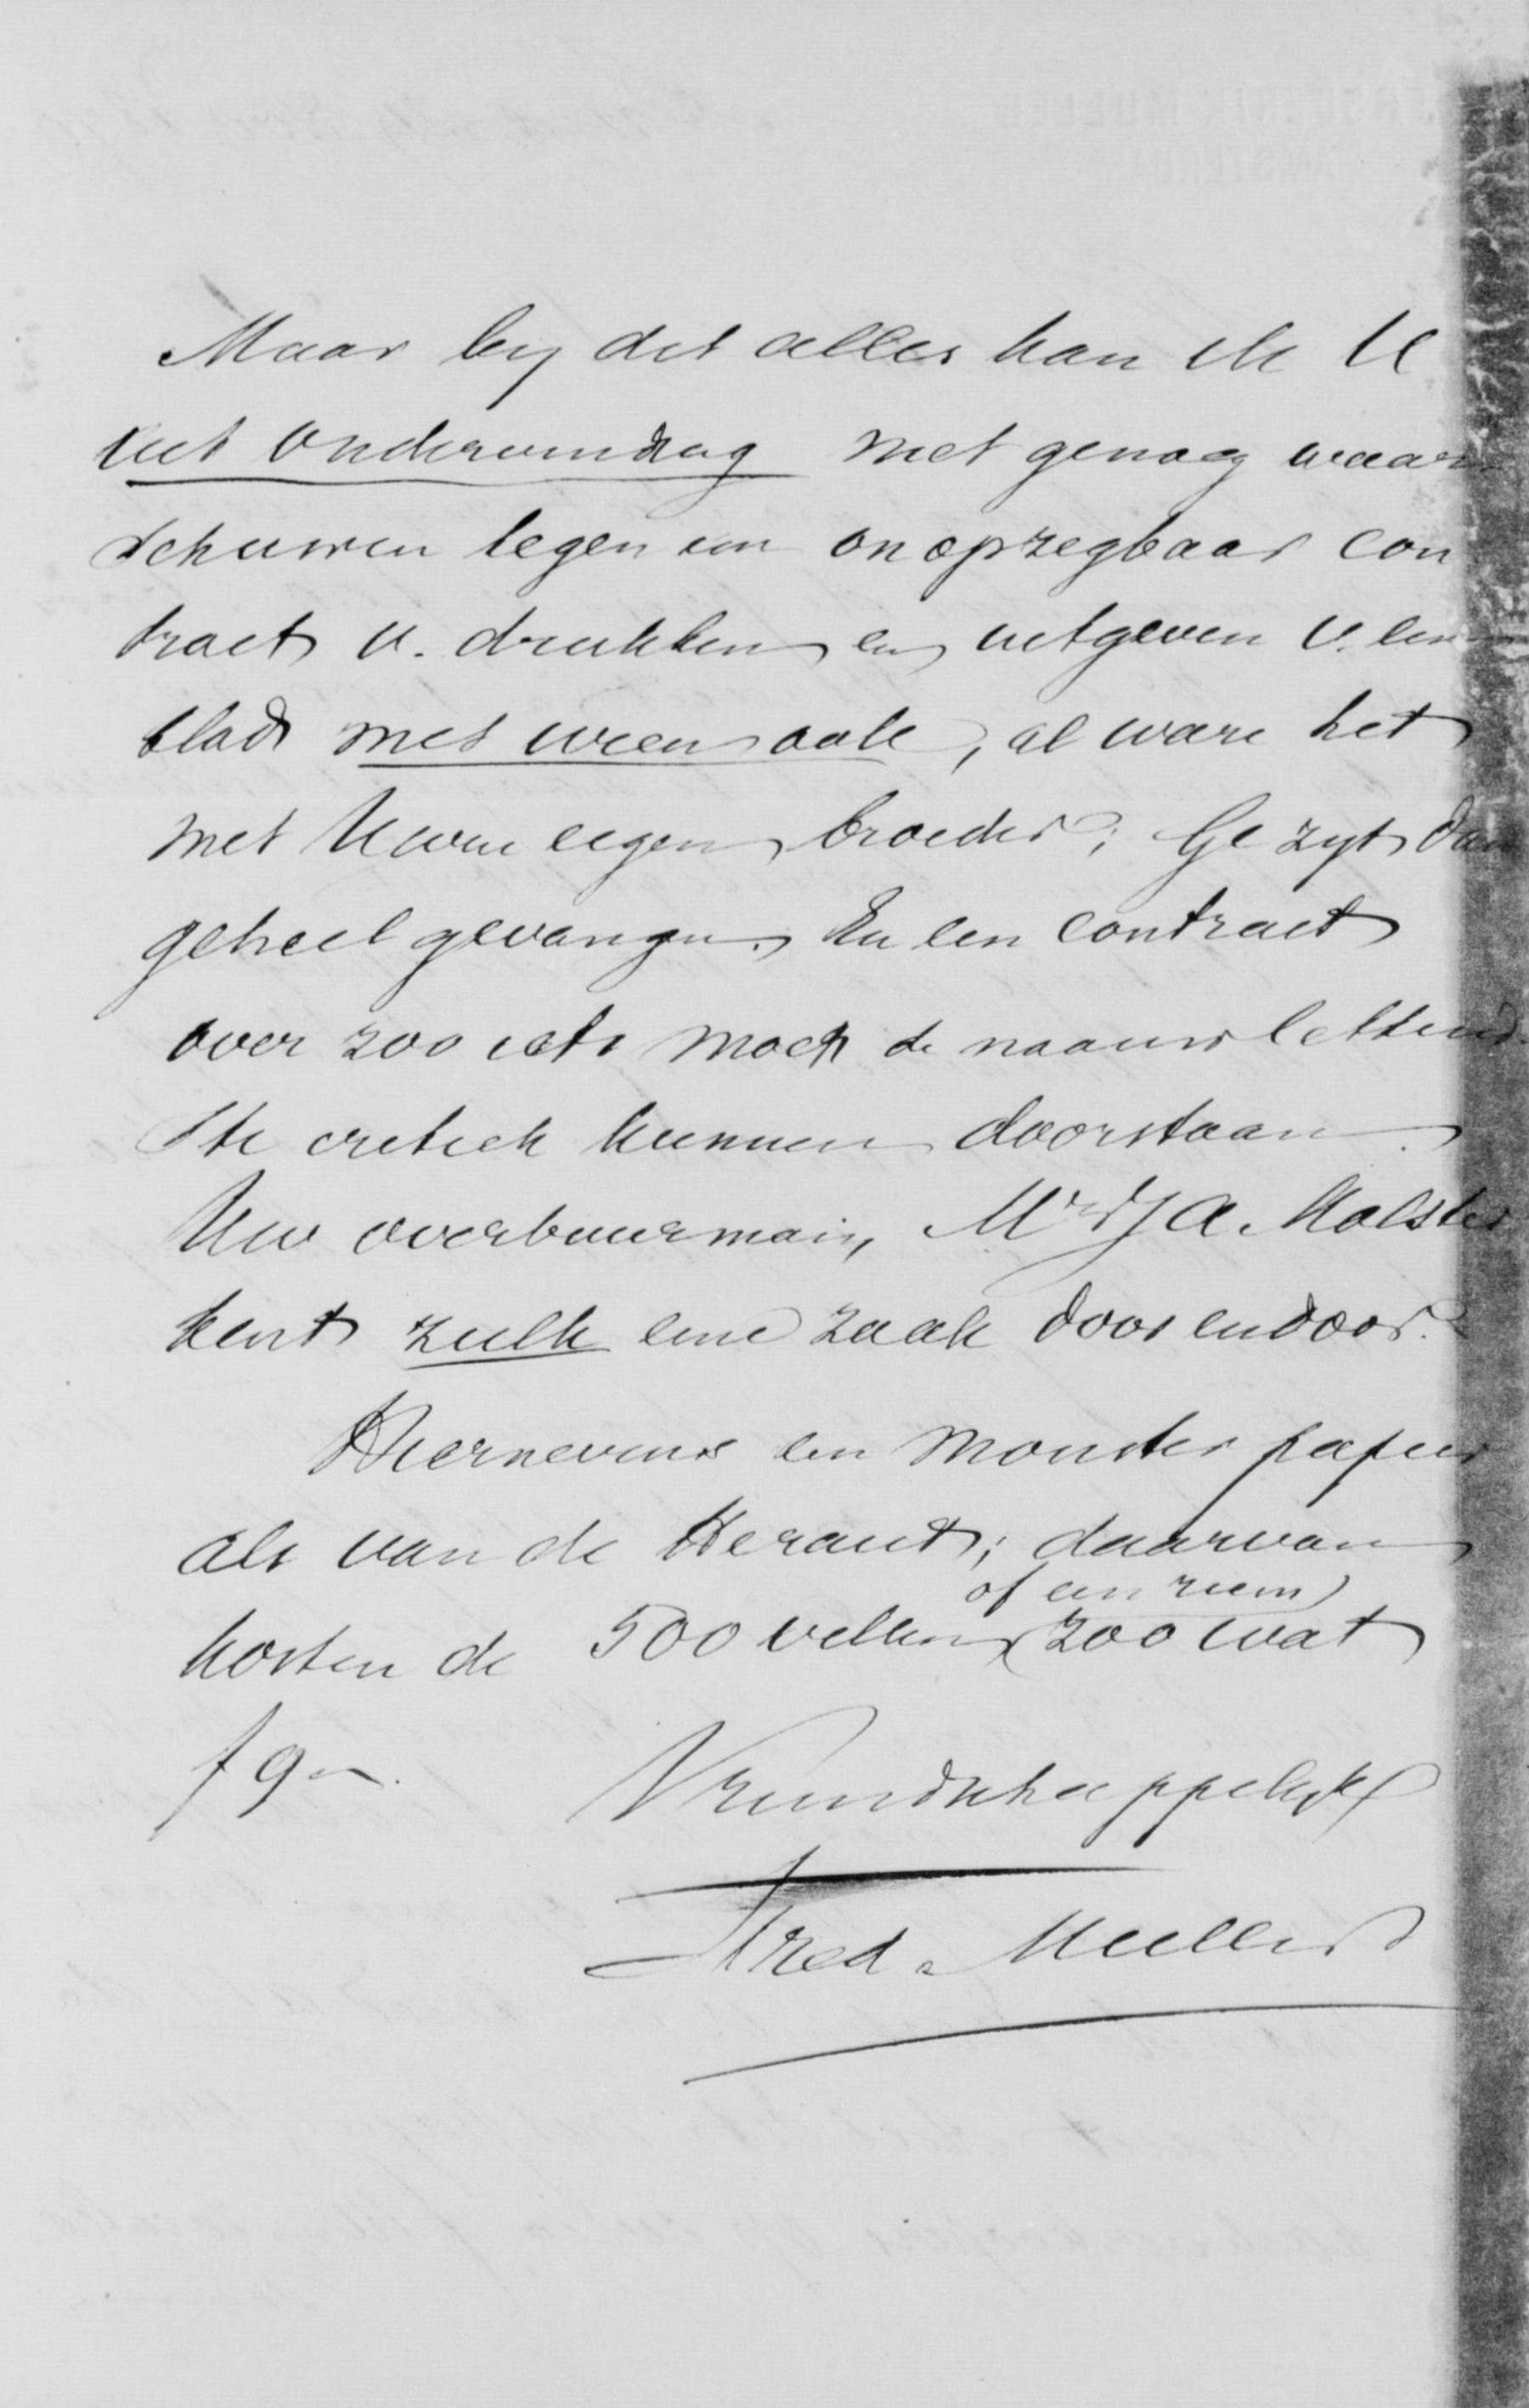 Maar by dit alles kan ik U
uit ondervinding niet genoeg waar
schuwen tegen een onopzegbaar con
tract v. drukken en uitgeven v. een
blad met wien ook, al ware het
met Uwen eigen broeder; Ge zyt dan
geheel gevangen. En een contract
over zoo iets moet de naauwlettend
ste critiek kunnen doorstaan.
Uw overbuurman, Mr J A. Molster
kent zulk eene zaak door en door.
Hiernevens een monster papier
als van de Heraut; daarvan
of een riem)
kosten de 500 vellen (zoo wat
f 9 -.
Vriendschappelijk
Fred. Muller